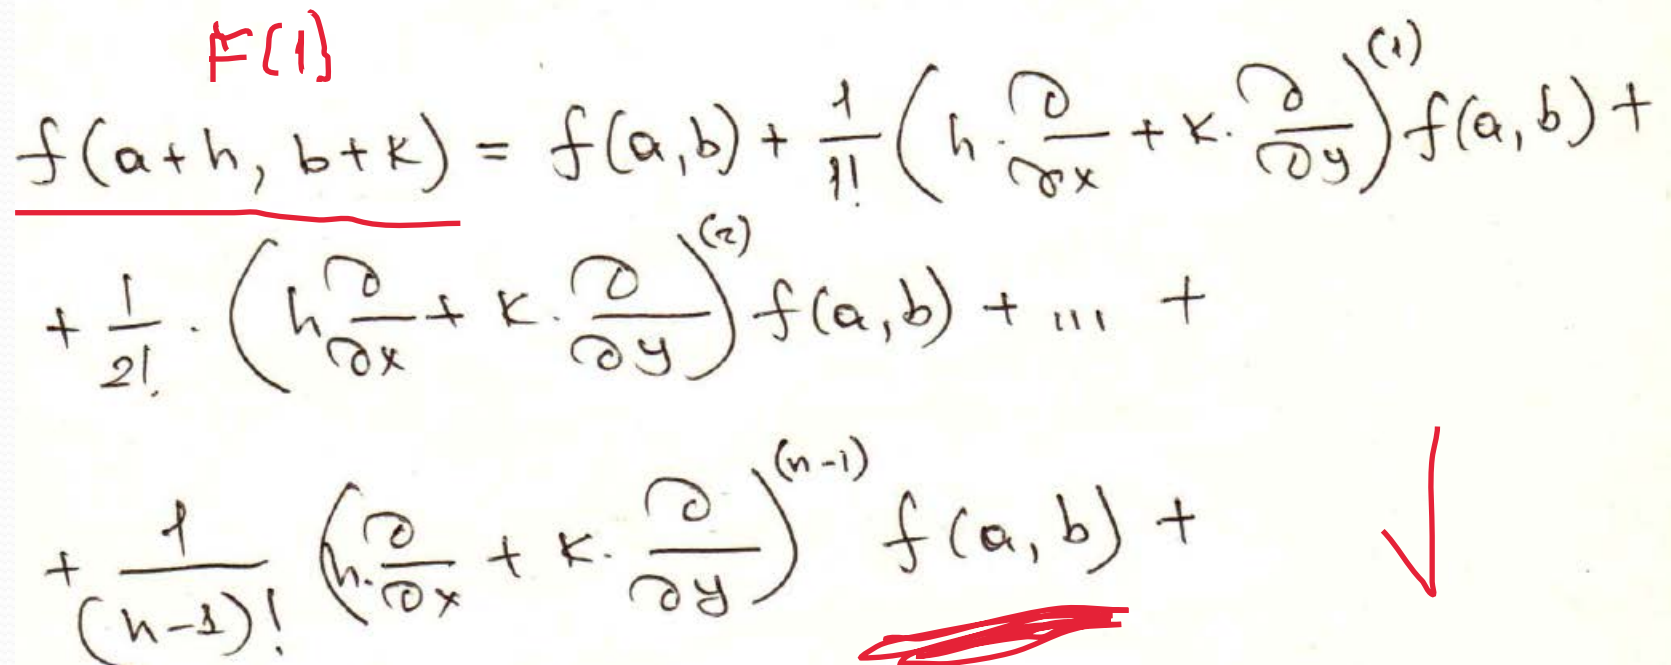 F(1)
f(a+h, b+k) = f(a,b) + 1/1! (h·∂/∂x + k·∂/∂y)^(1) f(a,b) +
+ 1/2! · (h ∂/∂x + k·∂/∂y)^(2) f(a,b) + ... +
+ 1/(n-1)! (h·∂/∂x + k·∂/∂y)^(n-1) f(a,b) +